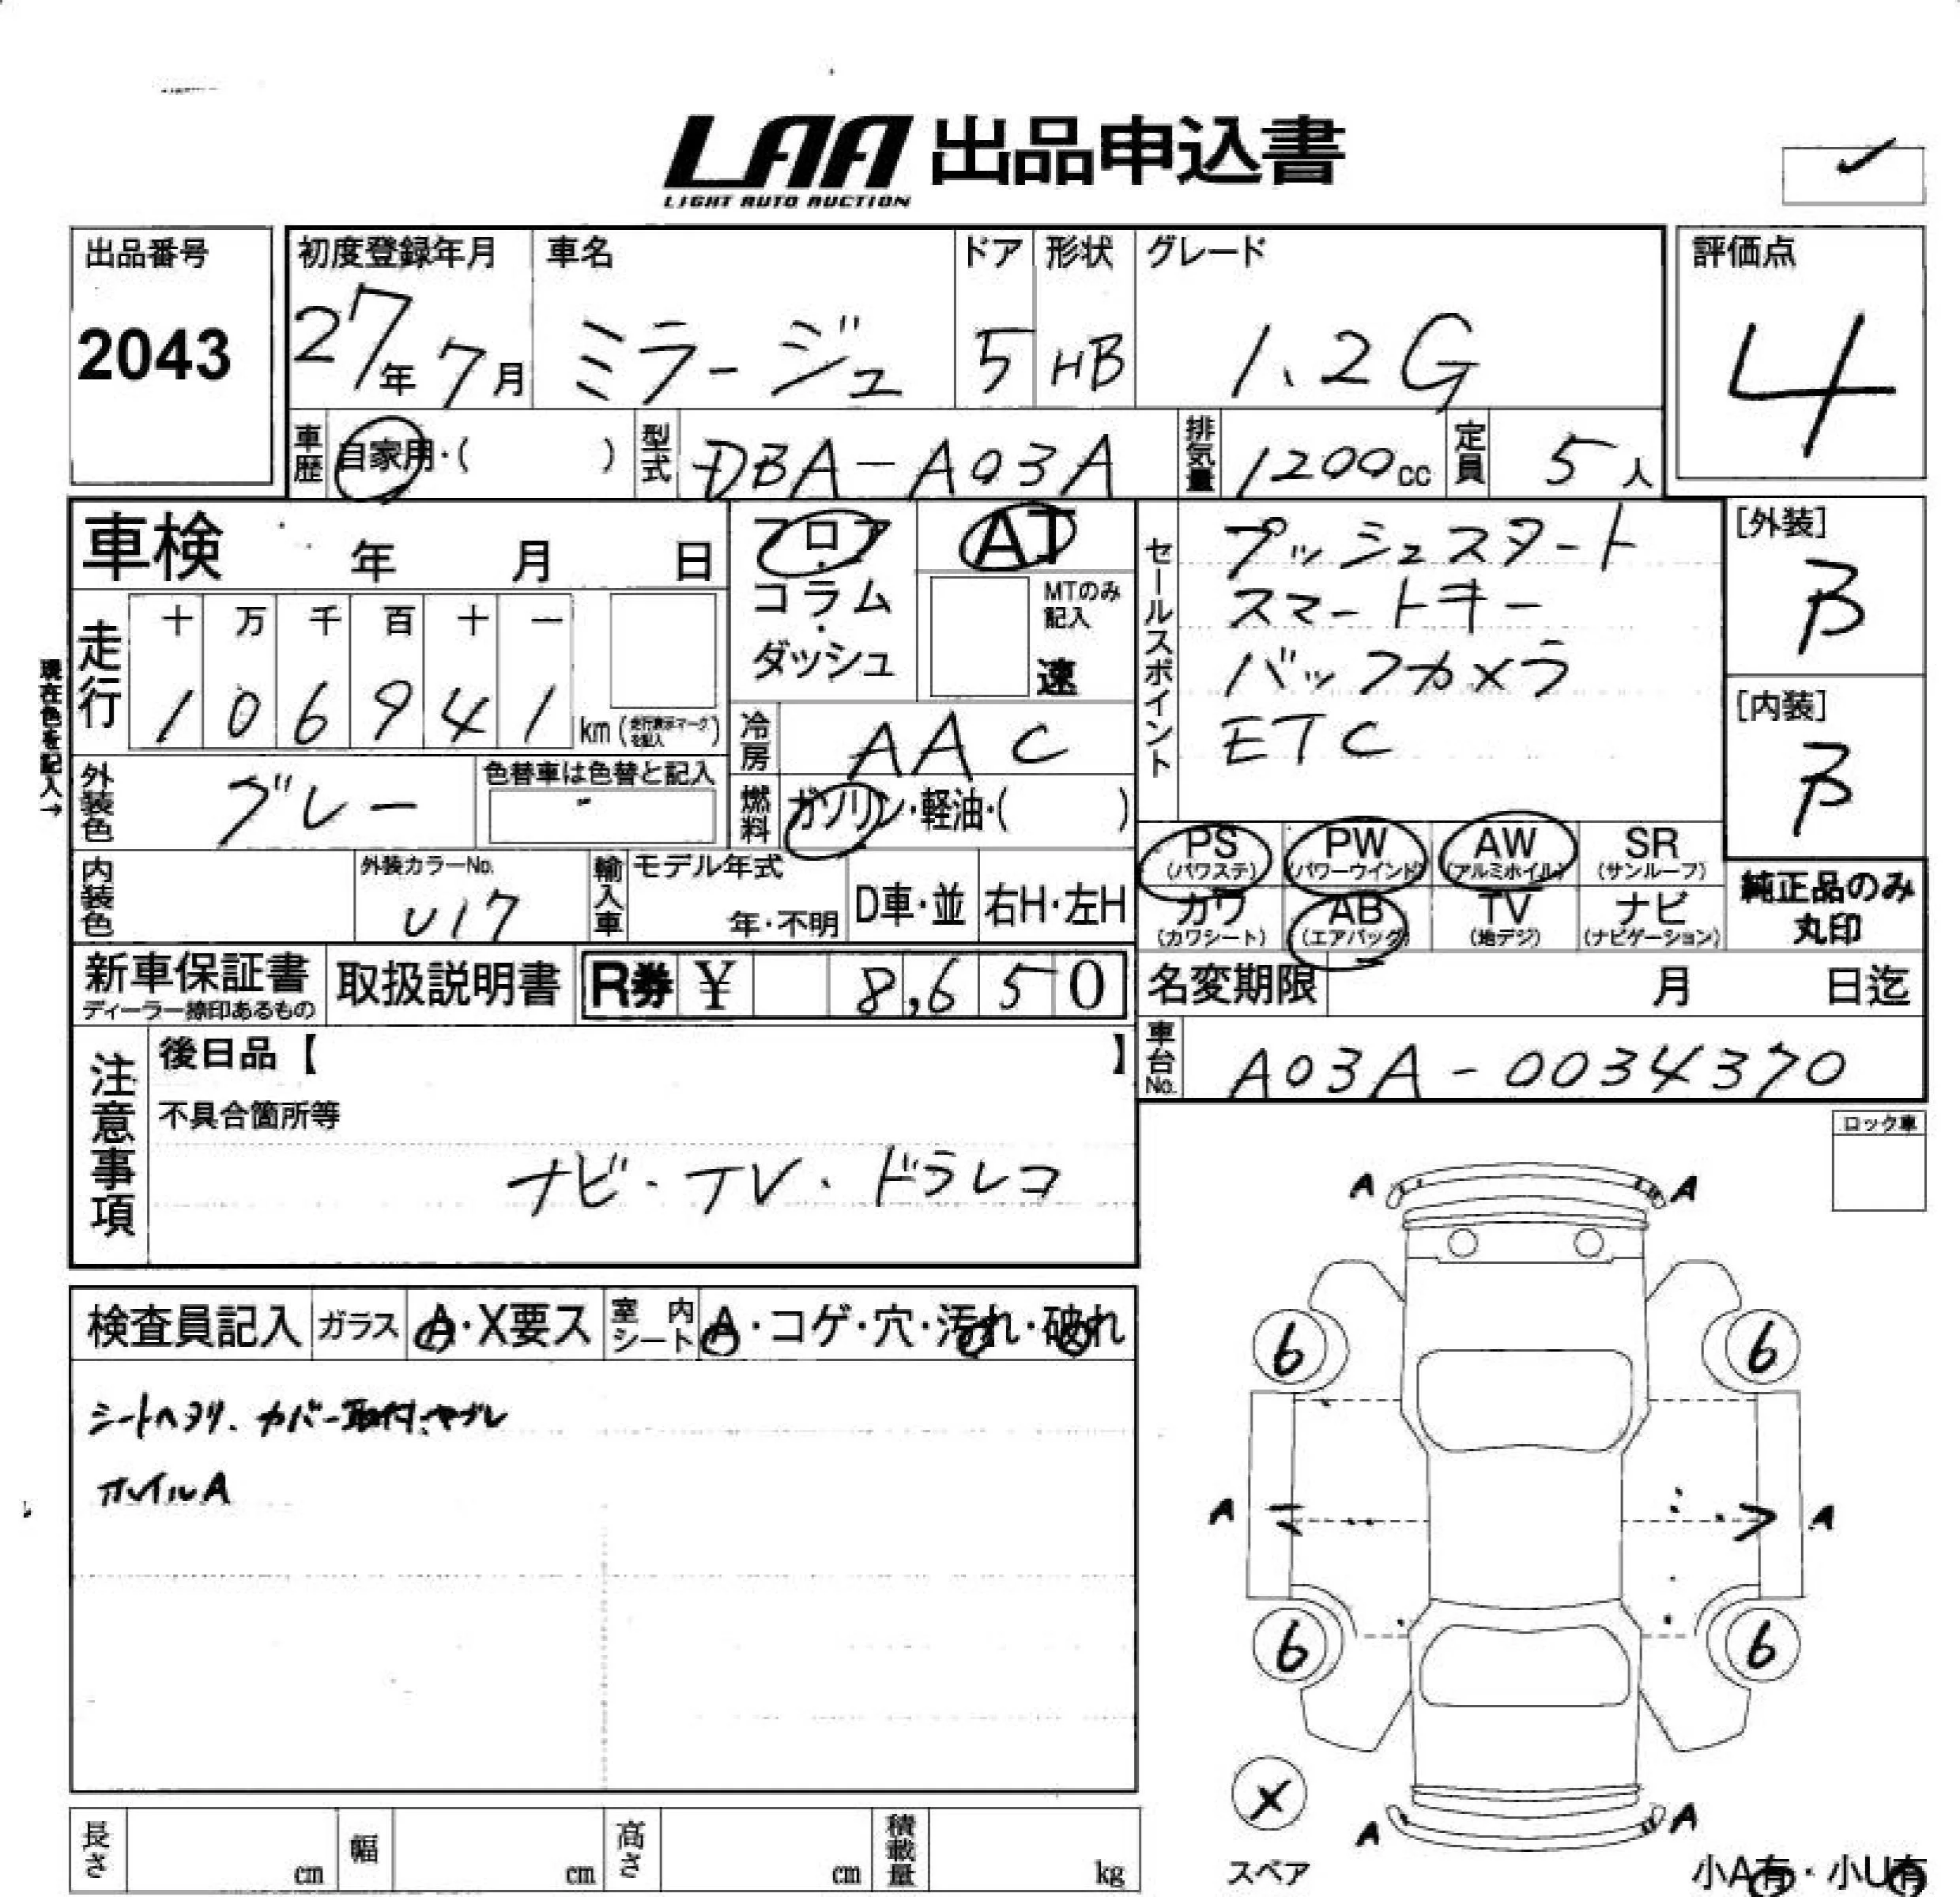 LAA 出品申込書
LIGHT AUTO AUCTION
出品番号
2043
初度登録年月
27年7月
車名
ミラージュ
ドア
5
形状
HB
グレード
1.2G
評価点
4
車歴
自家用・( )
型式
DBA-A03A
排気量
1200cc
定員
5人
車検 年 月 日
フロア・コラム・ダッシュ
AT
MTのみ記入
速
セールスポイント
プッシュスタート
スマートキー
バックカメラ
ETC
[外装]
B
[内装]
B
現在色を記入→
走行
十 万 千 百 十 一
1 0 6 9 4 1 km (走行表示マークを記入)
冷房
AAC
外装色
グレー
色替車は色替と記入
燃料
ガソリン・軽油・( )
PS (パワステ)
PW (パワーウインド)
AW (アルミホイル)
SR (サンルーフ)
カワ (カワシート)
AB (エアバック)
TV (地デジ)
ナビ (ナビゲーション)
純正品のみ丸印
内装色
外装カラーNo.
U17
輸入車
モデル年式
年・不明
D車・並
右H・左H
新車保証書
ディーラー捺印あるもの
取扱説明書
R券 ¥ 8,650
名変期限 月 日迄
車台No.
A03A-0034370
注意事項
後日品【 】
不具合箇所等
ナビ・TV・ドラレコ
ロック車
検査員記入
ガラス
A・X要ス
室内シート
A・コゲ・穴・汚れ・破れ
シートヘタリ、カバー取付、ヤブレ
ホイルA
A A
6 6
A A
6 6
X
スペア
A A
小A有・小U有
長さ cm
幅 cm
高さ cm
積載量 kg